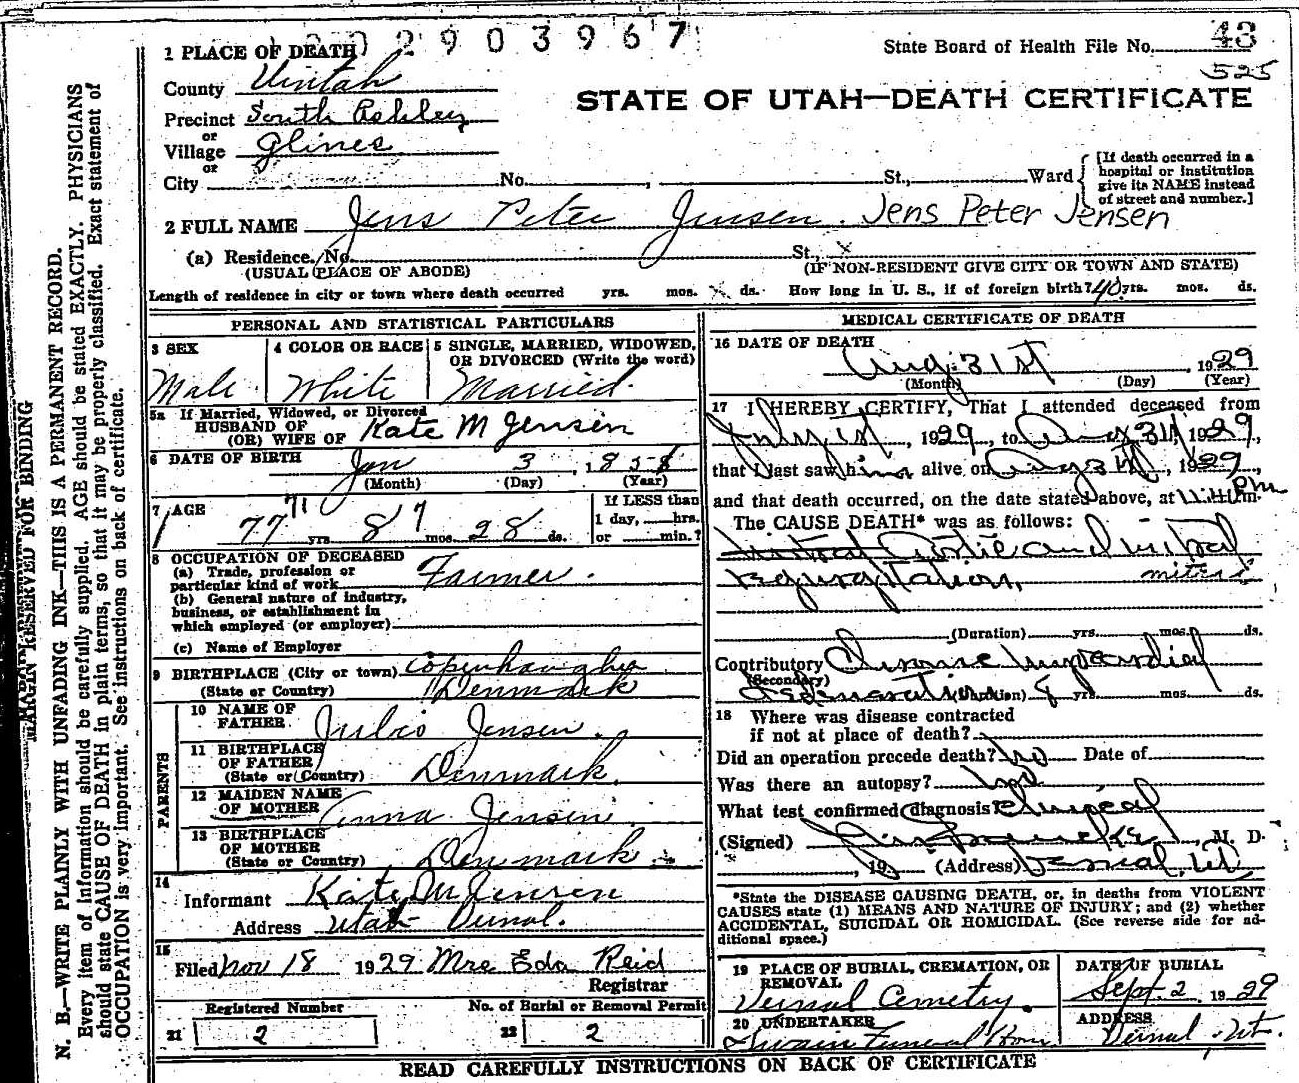 2903967
1 PLACE OF DEATH
State Board of Health File No. 43
525
County Uintah
STATE OF UTAH—DEATH CERTIFICATE
Precinct South Ashley
or
Village Glines
or
City No. , St., Ward
[If death occurred in a
hospital or institution
give its NAME instead
of street and number.]
2 FULL NAME Jens Peter Jensen. Jens Peter Jensen
(a) Residence. No. St., x
(USUAL PLACE OF ABODE) (IF NON-RESIDENT GIVE CITY OR TOWN AND STATE)
Length of residence in city or town where death occurred yrs. mos. x ds. How long in U. S., if of foreign birth? 40 yrs. mos. ds.
PERSONAL AND STATISTICAL PARTICULARS
3 SEX 4 COLOR OR RACE 5 SINGLE, MARRIED, WIDOWED,
OR DIVORCED (Write the word)
Male White Married
5a If Married, Widowed, or Divorced
HUSBAND OF
(OR) WIFE OF Kate M Jensen
6 DATE OF BIRTH Jan 3, 1858
(Month) (Day) (Year)
7 AGE If LESS than
1 day, hrs.
or min.?
71 7
77 yrs 8 mos. 28 ds.
8 OCCUPATION OF DECEASED
(a) Trade, profession or
particular kind of work Farmer.
(b) General nature of industry,
business, or establishment in
which employed (or employer)
(c) Name of Employer
9 BIRTHPLACE (City or town) Copenhaugher
(State or Country) Denmark
PARENTS
10 NAME OF
FATHER Julio Jensen.
11 BIRTHPLACE
OF FATHER
(State or Country) Denmark.
12 MAIDEN NAME
OF MOTHER Anna Jensen.
13 BIRTHPLACE
OF MOTHER
(State or Country) Denmark
14
Informant Kate M Jensen
Address Utah Vernal.
15
Filed Nov 18 1929 Mrs Eda Reid
Registrar
Registered Number No. of Burial or Removal Permit
21 2 22 2
MEDICAL CERTIFICATE OF DEATH
16 DATE OF DEATH
Aug. 31st, 1929
(Month) (Day) (Year)
17 I HEREBY CERTIFY, That I attended deceased from
July 1st, 1929, to Aug 31, 1929,
that I last saw him alive on Aug 31, 1929,
and that death occurred, on the date stated above, at 11 Pm m.
The CAUSE DEATH* was as follows:
Aortic and mitral
Regurgitation, mitral
(Duration) yrs. mos. ds.
Contributory Chronic Myocardial
(Secondary)
Degeneration (Duration) 8 yrs mos. ds.
18 Where was disease contracted
if not at place of death?
Did an operation precede death? No Date of
Was there an autopsy? No
What test confirmed diagnosis Clinical
(Signed) , M. D.
, 19 (Address) Vernal, Ut
*State the DISEASE CAUSING DEATH, or, in deaths from VIOLENT
CAUSES state (1) MEANS AND NATURE OF INJURY; and (2) whether
ACCIDENTAL, SUICIDAL OR HOMICIDAL. (See reverse side for ad-
ditional space.)
19 PLACE OF BURIAL, CREMATION, OR
REMOVAL
Vernal Cemetry.
DATE OF BURIAL
Sept. 2 1929
20 UNDERTAKER
Swain Funeral Home
ADDRESS
Vernal Ut.
READ CAREFULLY INSTRUCTIONS ON BACK OF CERTIFICATE
MARGIN RESERVED FOR BINDING
N. B.—WRITE PLAINLY WITH UNFADING INK—THIS IS A PERMANENT RECORD.
Every item of information should be carefully supplied. AGE should be stated EXACTLY. PHYSICIANS
should state CAUSE OF DEATH in plain terms, so that it may be properly classified. Exact statement of
OCCUPATION is very important. See instructions on back of certificate.